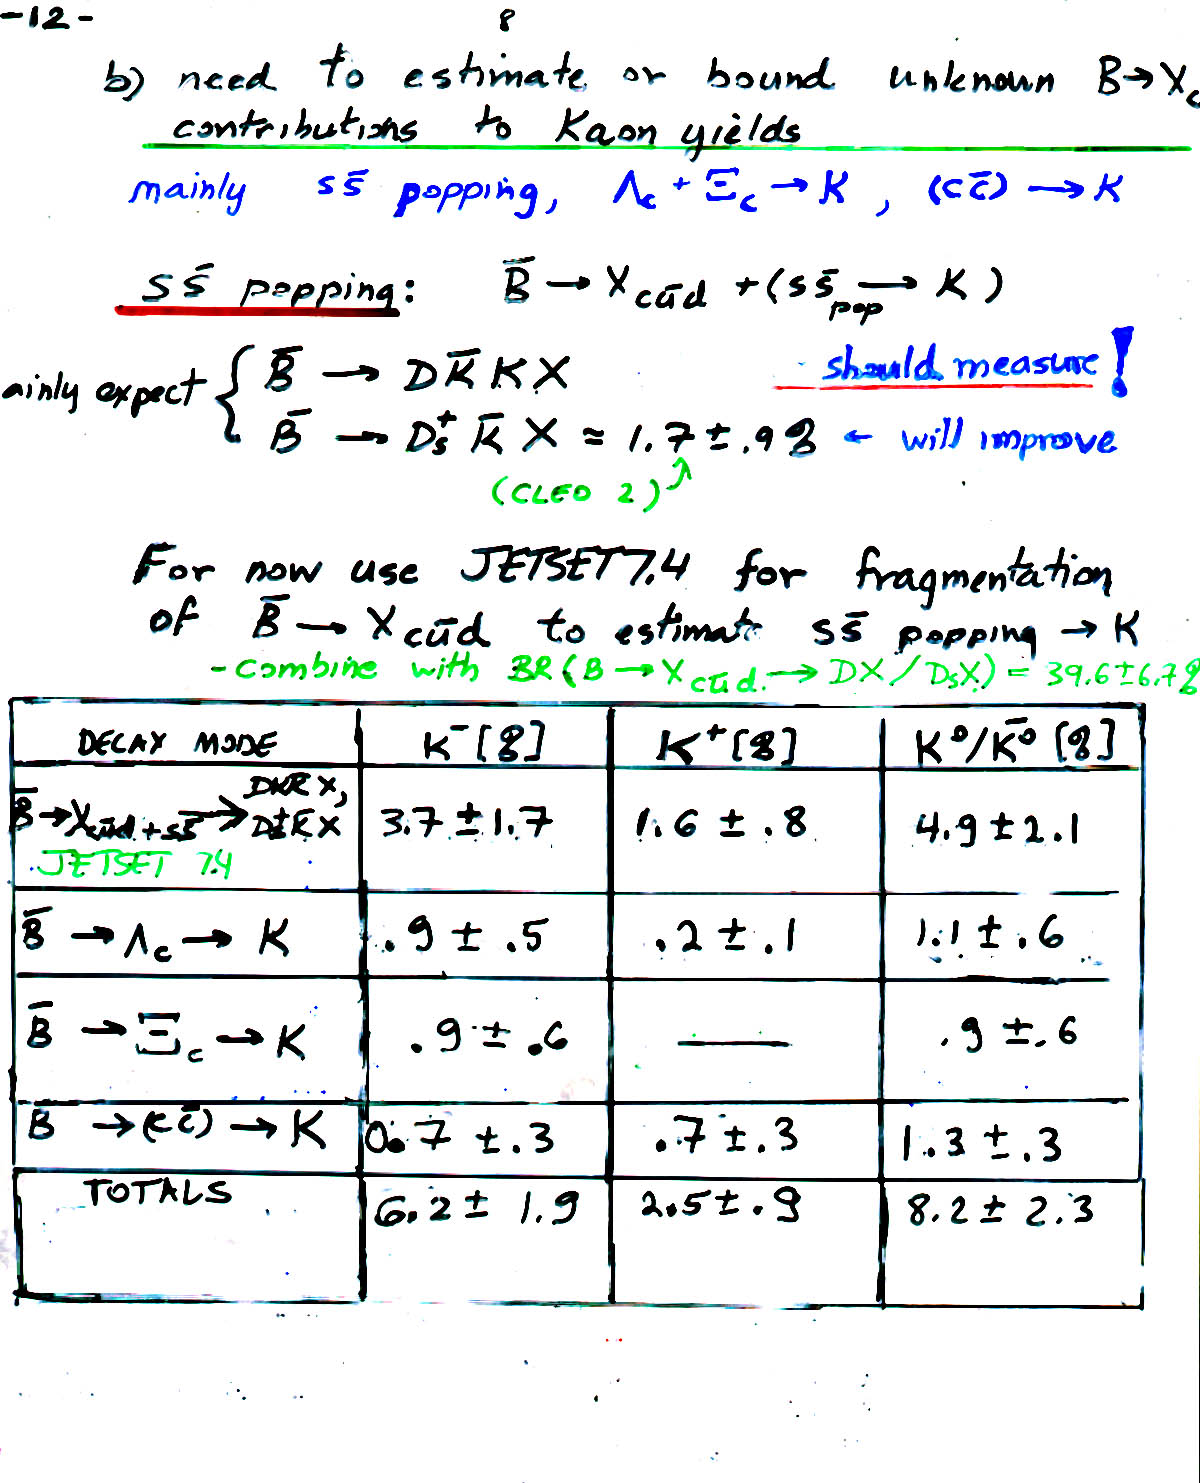 -12-
8
b) need to estimate or bound unknown B→X_c
contributions to Kaon yields
mainly ss̄ popping, Λc + Ξc → K, (cc̄) → K
ss̄ popping: B̄ → X_cūd + (ss̄_pop → K)
ainly expect { B̄ → DK̄KX - should measure!
B̄ → Ds⁺ K̄ X ≈ 1.7 ± .9% ← will improve
(CLEO 2)
For now use JETSET7.4 for fragmentation
of B̄ → X_cūd to estimate ss̄ popping → K
- combine with BR(B → X_cūd → DX/DsX) = 39.6±6.7%
DECAY MODE K⁻[%] K⁺[%] K⁰/K̄⁰ [%]
B̄→X_cūd+ss̄ → DKK̄X, Ds⁺K̄X 3.7 ± 1.7 1.6 ± .8 4.9 ± 2.1
JETSET 7.4
B̄ → Λc → K .9 ± .5 .2 ± .1 1.1 ± .6
B̄ → Ξc → K .9 ± .6 — .9 ± .6
B̄ → (cc̄) → K 0.7 ± .3 .7 ± .3 1.3 ± .3
TOTALS 6.2 ± 1.9 2.5 ± .9 8.2 ± 2.3